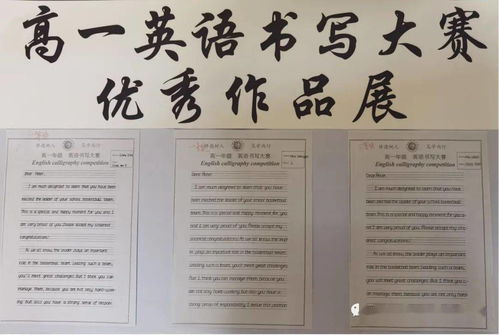 高一英语书写大赛
优秀作品展
高一年级 英语书写大赛
English calligraphy competition
Dear Peter,
I am much delighted to learn that you have been
elected the leader of your school basketball team.
This is a special and happy moment for you and I
am very proud of you. Please accept my sincerest
congratulations!
As we all know, the leader plays an important
role in the basketball team. Leading such a team,
you'll meet great challenges. But I think you can
manage them, because you are not only hard-work-
ing but also you have a strong sense of respon-
高一年级 英语书写大赛
English calligraphy competition
Dear Peter,
I am much delighted to learn that you have been
elected the leader of your school basketball team.
This is a special and happy moment for you
and I am very proud of you. Please accept my
sincerest congratulations!
As we all know, the leader
plays an important role in the basketball team.
Leading such a team, you'll meet great challenges.
But I think you can manage them, because you
are not only hard-working but also you have a
strong sense of responsibility. I believe this
高一年级 英语书写大赛
English calligraphy competition
Dear Peter,
I am much delighted to learn that you have been
elected the leader of your school basketball
team. This is a special and happy moment for you
and I am very proud of you. Please accept my
sincerest congratulations!
As we all know, the leader plays an important
role in the basketball team. Leading such a team,
you'll meet great challenges. But I think you can
manage them, because you are not only